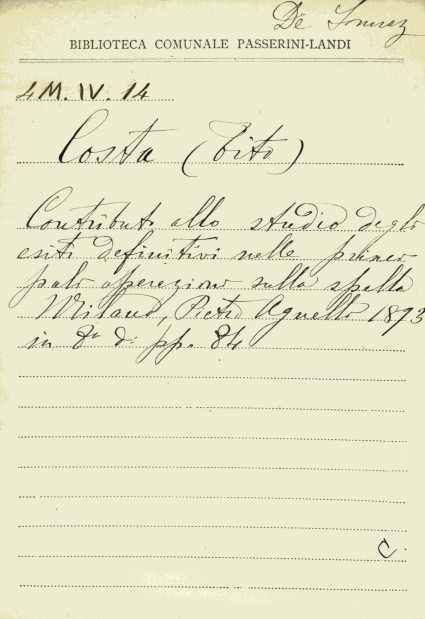 De
BIBLIOTECA COMUNALE PASSERINI-LANDI
4M. IV. 14
Costa (Tito)
Contributo allo studio degli
esiti definitivi nelle princi
pali operazioni sulla spalla
Milano, Pietro Agnelli 1893
in 8° di pp. 84
C.